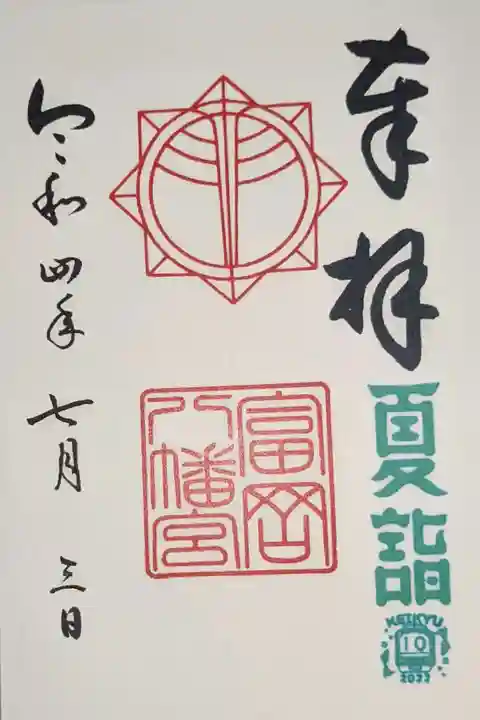 奉拝
夏詣
KEIKYU
10
2022
富岡
八幡宮
令和四年七月三日